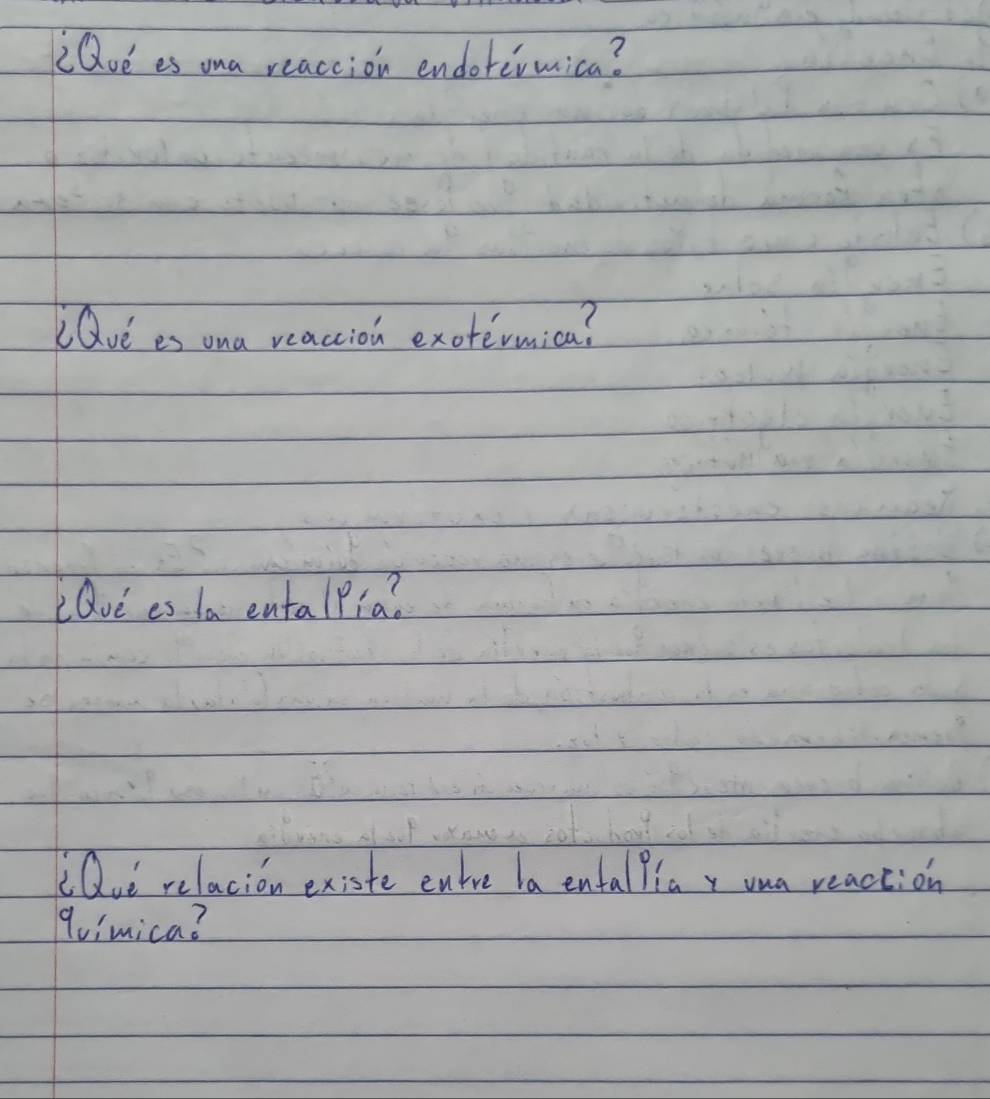 ¿Qué es una reacción endotérmica?
¿Qué es una reacción exotérmica?
¿Qué es la entalpía?
¿Qué relación existe entre la entalpía y una reacción
química?